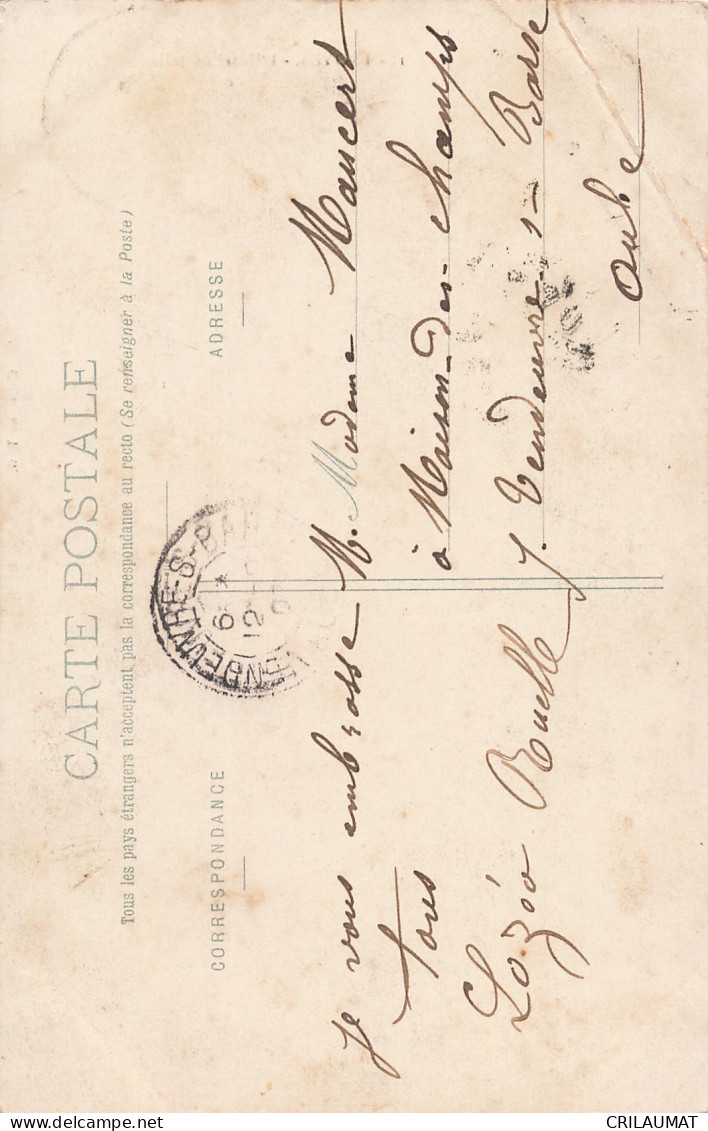 CARTE POSTALE
Tous les pays étrangers n'acceptent pas la correspondance au recto (Se renseigner à la Poste)
CORRESPONDANCE
ADRESSE
je vous embrasse
tous
Ruelle
M. Madame Maucert
à Maison-des-champs
Vendeuvre-s-Barse
Aube
VENDEUVRE-S-BAR
6
12
CRILAUMAT